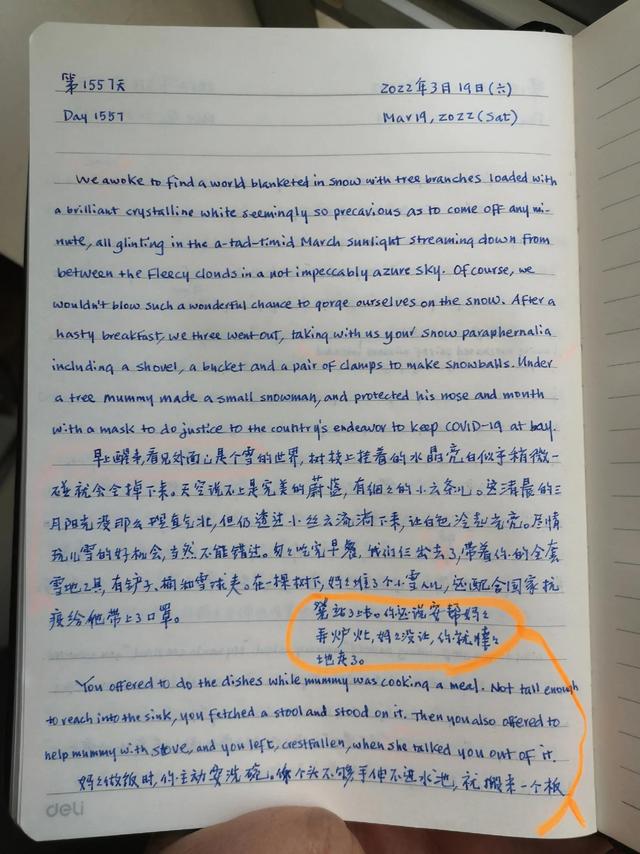 第1557天 2022年3月19日(六)
Day 1557 Mar 19, 2022 (Sat)
We awoke to find a world blanketed in snow with tree branches loaded with
a brilliant crystalline white seemingly so precavious as to come off any mi-
nute, all glinting in the a-tad-timid March sunlight streaming down from
between the fleecy clouds in a not impeccably azure sky. Of course, we
wouldn't blow such a wonderful chance to gorge ourselves on the snow. After a
hasty breakfast, we three went out, taking with us your snow paraphernalia
including a shovel, a bucket and a pair of clamps to make snowballs. Under
a tree mummy made a small snowman, and protected his nose and month
with a mask to do justice to the country's endeavor to keep COVID-19 at bay.
早上醒来,看见外面已是个雪的世界,树枝上挂着的水晶亮白似乎稍微一
碰就会全掉下来。天空说不上是完美的蔚蓝,有细细的小云条儿。这清晨的三
月阳光没那么理直气壮,但仍透过小丝云流淌下来,让白色泛起光亮。尽情
玩儿雪的好机会,当然不能错过。匆匆吃完早餐,我们仨出去了,带着你的全套
雪地工具,有铲子、桶和雪球夹。在一棵树下,妈妈堆了个小雪人儿,还配合国家抗
疫给他带上了口罩。
凳站了上去。你还说要帮妈妈
弄炉灶,妈妈没让,你就悻悻
地走了。
You offered to do the dishes while mummy was cooking a meal. Not tall enough
to reach into the sink, you fetched a stool and stood on it. Then you also offered to
help mummy with stove, and you left, crestfallen, when she talked you out of it.
妈妈做饭时,你主动要洗碗。你个头不够,手伸不进水池,就搬来一个板
deli